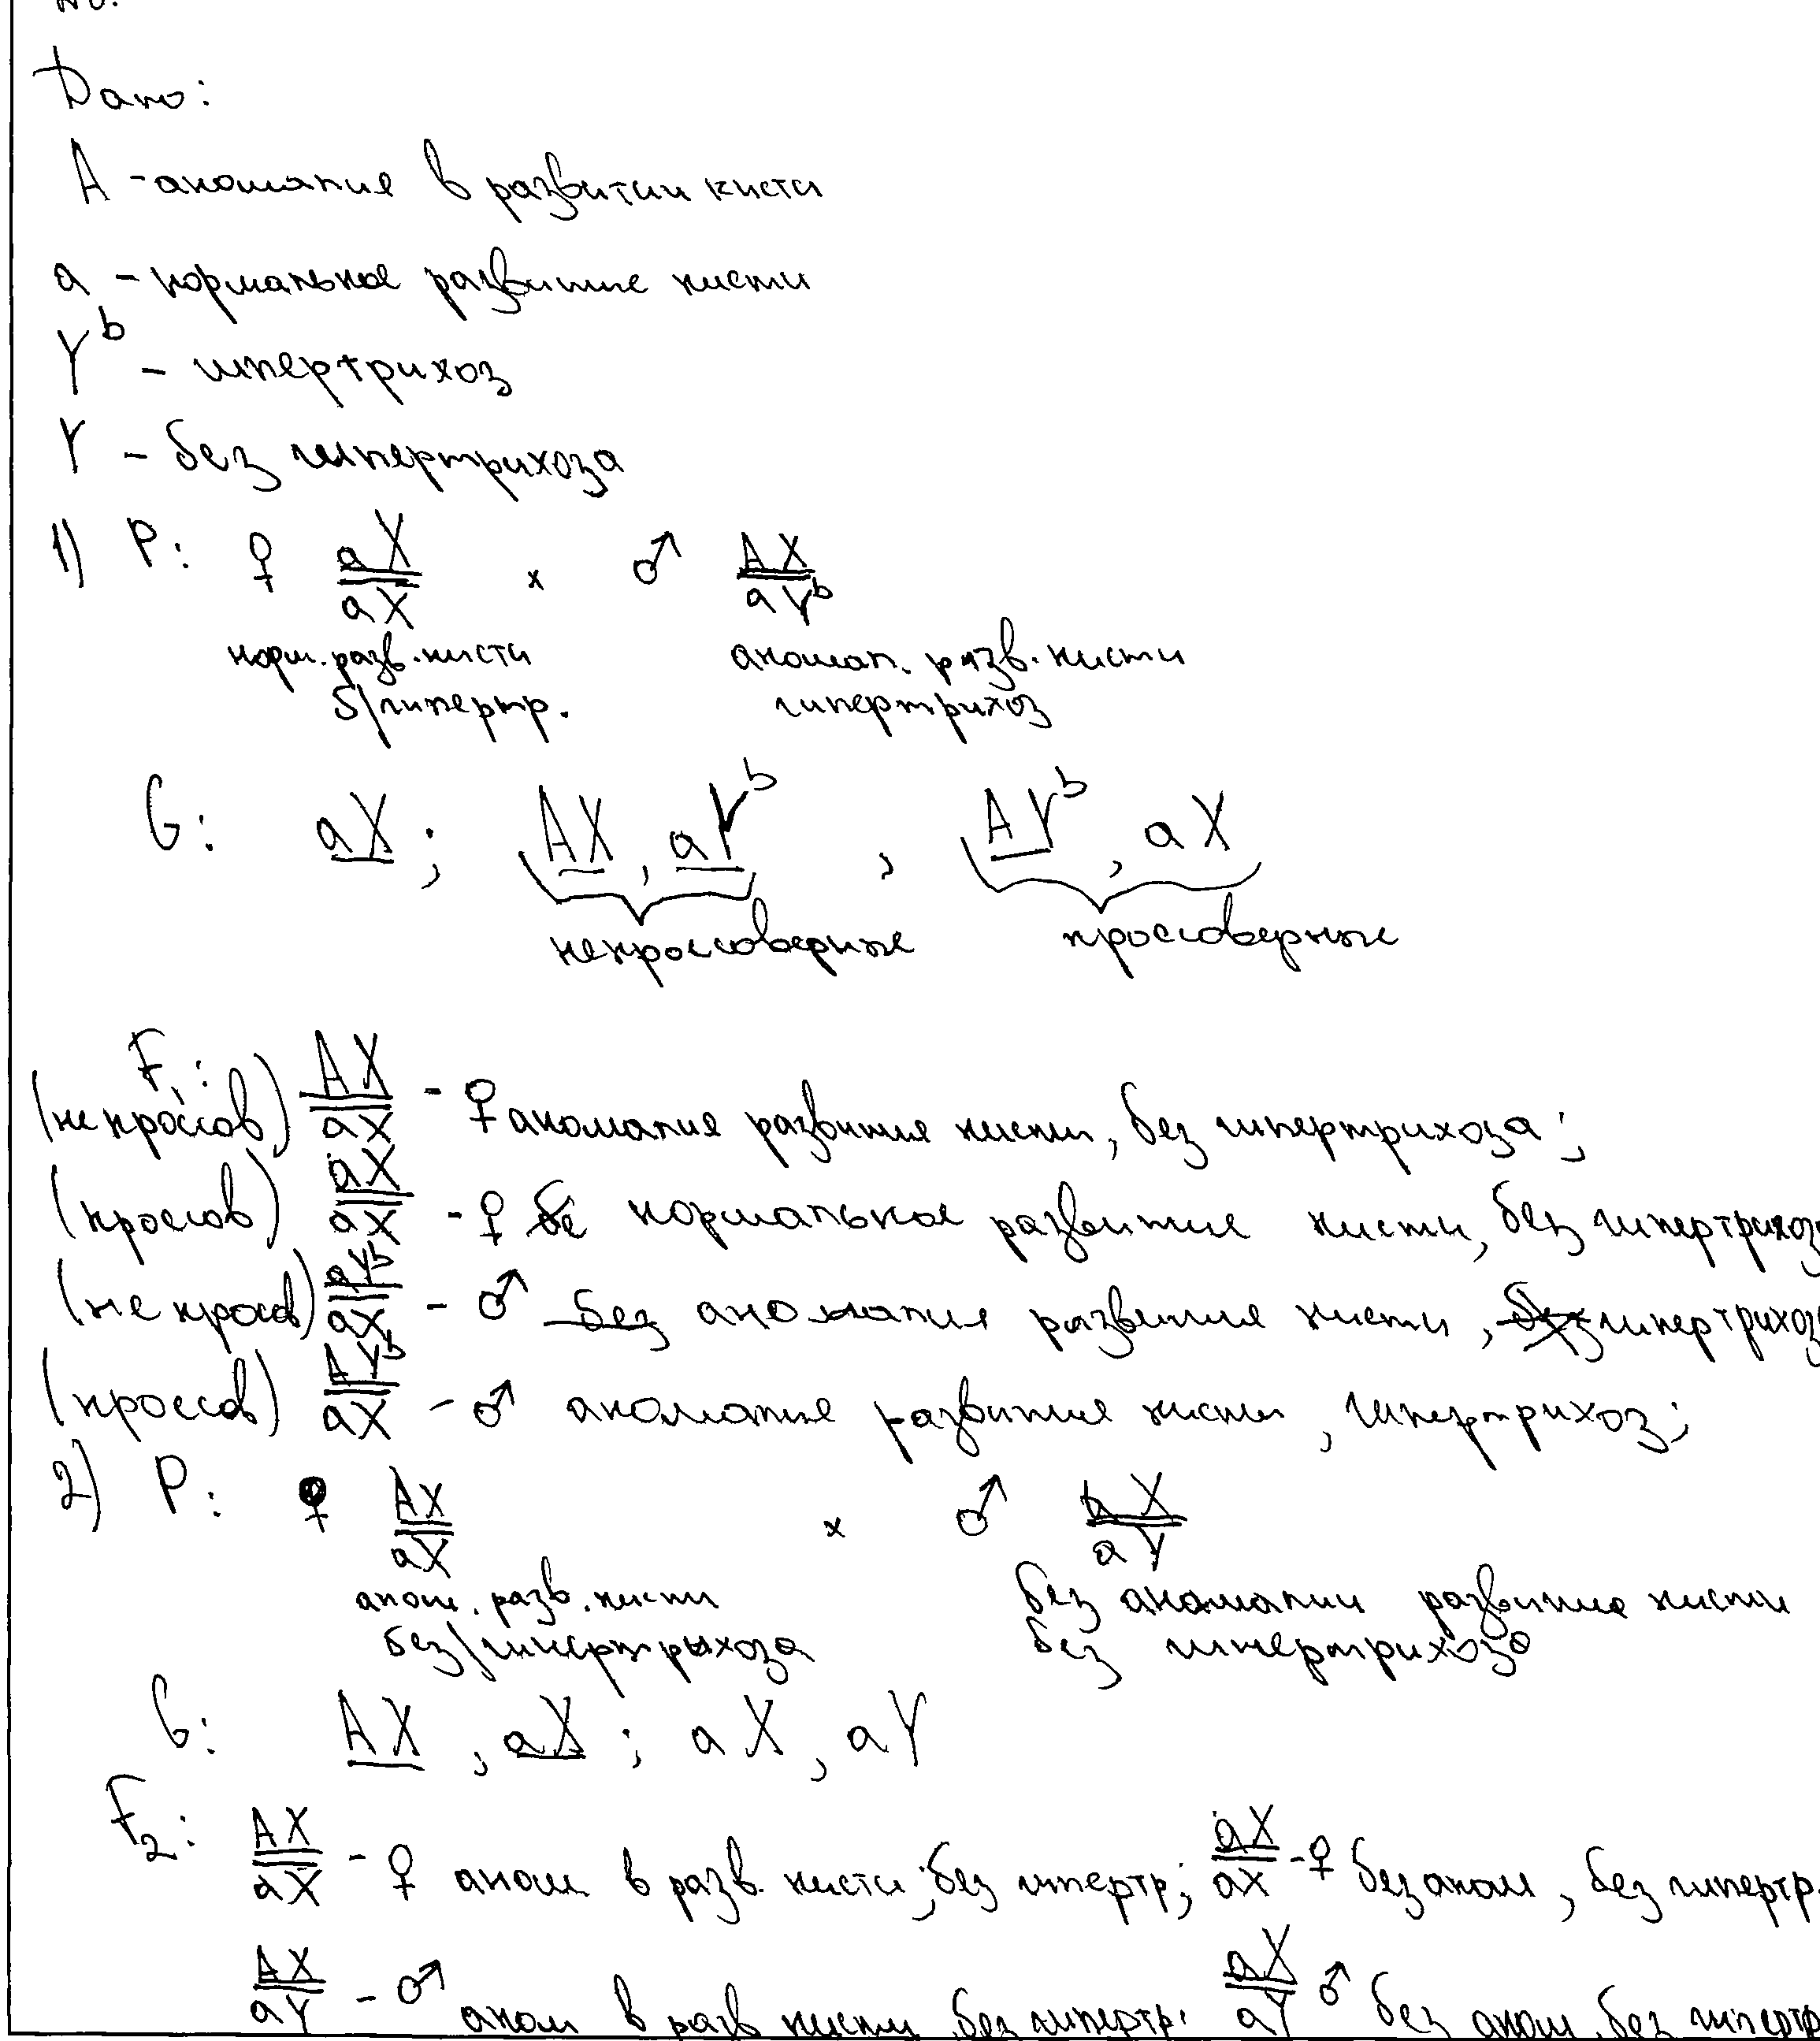 Дано:
A - аномалия в развитии кисти
a - нормальное развитие кисти
Y^b - гипертрихоз
Y - без гипертрихоза
1) P: ♀ aX/aX × ♂ AX/aY^b
норм. разв. кисти аномал. разв. кисти
б/гипертр. гипертрихоз
G: aX; AX, aY^b, AY^b, aX
некроссоверные кроссоверные
F1:
(некроссов) AX/aX - ♀ аномалия развития кисти, без гипертрихоза;
(кроссов) aX/aX - ♀ нормальное развитие кисти, без гипертрихоз
(не кроссов) aY^b/aX - ♂ ~~без~~ аномалия развития кисти, ~~без~~ гипертрихоз
(кроссов) AY^b/aX - ♂ аномалия развития кисти, гипертрихоз;
2) P: ♀ AX/aX × ♂ aX/aY
аном. разв. кисти без аномалии развитие кисти
без/гипертрыхоза без гипертрихоза
G: AX, aX; aX, aY
F2: AX/aX - ♀ аном в разв. кисти; без гипертр; aX/aX - ♀ без аном, без гипертр.
AX/aY - ♂ аном в разв кисти, без гипертр. aX/aY ♂ без аном, без гипертр